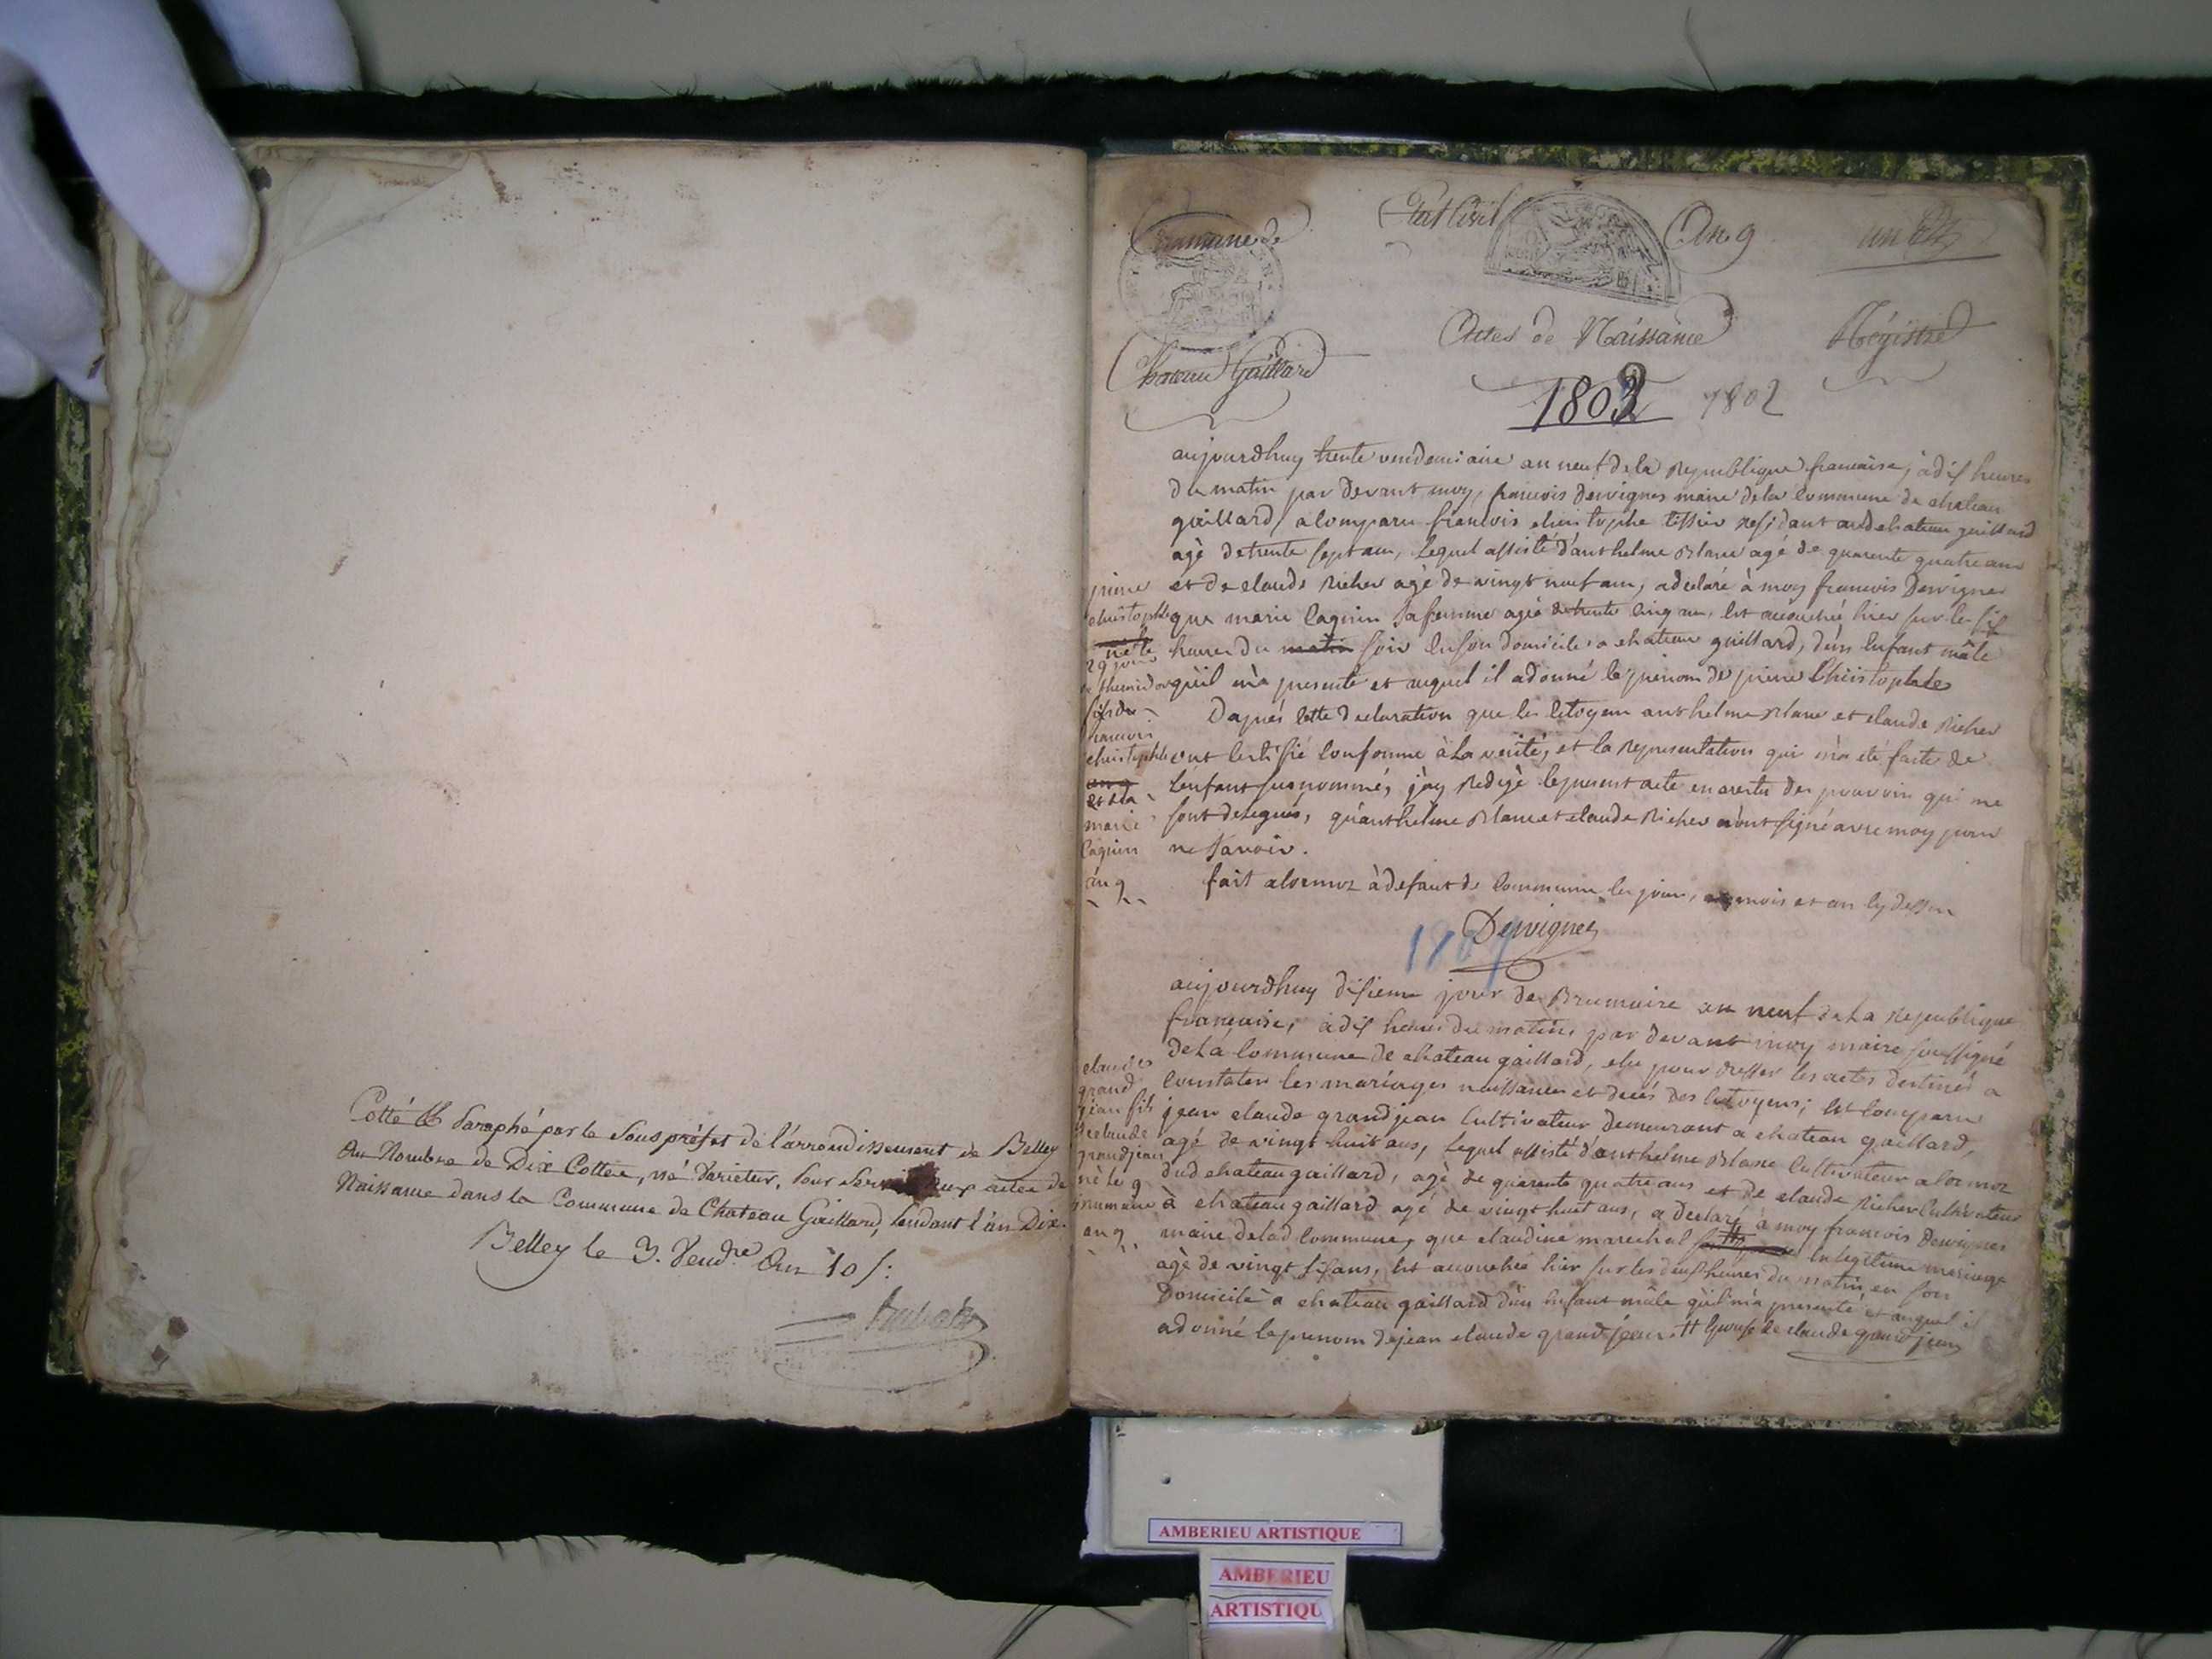 Cotté & Paraphé par le Sous préfet de l'arrondissement de Belley
Au Nombre de Dix Cottes, né Varietur, Pour Servir aux actes de
Naissance dans la Commune de Chateau Gaillard, pendant l'an Dix.
Belley le 3. Vendre. An 10 f:
Commune de
Etat Civil
An 9
Chateau Gaillard
Actes de Naissance
Régistre
1803 1802
aujourdhuy trente vendemiaire an neuf de la Republique francaise, à dix heures
du matin par devant moy, francois Dervignes maire de la Commune de chateau
gaillard, a Comparu francois christophe tissier residant aud chateau gaillard
agé de trente sept ans, Lequel assisté d'anthelme Blanc agé de quarente quatre ans
et de claude Richer agé de vingt neuf ans, a declaré à moy francois Dervignes
que marie Cagnin sa femme agée de trente cinq ans, Est accouchée hier sur les six
heures du matin soir En son domicile a chateau gaillard, d'un Enfant mâle
qu'il m'a presenté et auquel il a donné le prenom de pierre Christophle
Dapués Cette Declaration que les Citoyens anthelme Blanc et claude Richer
ont Certifié Conforme à La verité, et la Representation qui m'a eté faite de
L'enfant susnommé, j'ay Redigé le present acte en vertu des pouvoirs qui me
sont delegués, qu'anthelme Blanc et claude Richer n'ont signé avec moy pour
ne Savoir.
fait a Cormoz à defaut de Commune les jour, mois et an Cy dessus
Dervignes
pierre
christophle
né le
29 jour
fils de
francois
christophle
et de la
marie
Cagnin
an 9
aujourdhuy dixieme jour de Brumaire an neuf de La Republique
française, à dix heures du matin, par devant moy maire soussigné
de La Commune de chateau gaillard, elu pour dresser les actes destinés a
Constater les mariages naissances et decés des Citoyens; Est Comparu
jean claude grandjean Cultivateur demeurant à chateau gaillard,
agé de vingt huit ans, Lequel assisté d'anthelme Blanc Cultivateur a Cormoz
dud chateau gaillard, agé de quarente quatre ans et de claude Richer Cultivateur
à chateau gaillard agé de vingt huit ans, a declaré à moy francois Dervignes
maire de lad Commune, que claudine marechal En legitime mariage
agé de vingt six ans, Est accouchée hier sur les deux heures du matin, en son
Domicile a chateau gaillard d'un Enfant mâle qu'il m'a presenté et auquel il
a donné le prenom de jean claude grandjean. # Epouse de claude grandjean
claude
grand
jean fils
de claude
grandjean
né le 9
brumaire
an 9
AMBERIEU ARTISTIQUE
AMBERIEU
ARTISTIQU